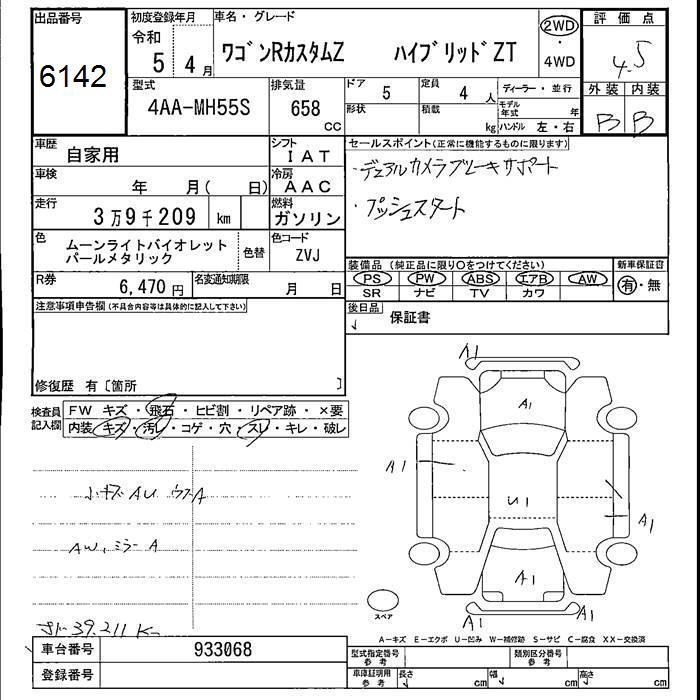 出品番号 初度登録年月 車名・グレード 2WD 評価点
6142 令和 5 4月 ワゴンRカスタムZ ハイブリッドZT ・ 4WD 4.5
型式 4AA-MH55S 排気量 658 cc ドア 5 定員 4人 ディーラー・並行 外装 内装
形状 積載 kg モデル年式 年 ハンドル 左・右 B B
車歴 自家用 シフト IAT セールスポイント(正常に機能するものに限ります)
車検 年 月( 日) 冷房 AAC ・デュアルカメラブレーキサポート
走行 3万9千209 km 燃料 ガソリン ・プッシュスタート
色 ムーンライトバイオレットパールメタリック 色替 色コード ZVJ
装備品(純正品に限り○をつけてください) 新車保証書
PS PW ABS エアB AW 有・無
SR ナビ TV カワ
R券 6,470円 名変通知期限 月 日
後日品 保証書
注意事項申告欄(不具合内容等は具体的に記入して下さい)
修復歴 有〔箇所 〕
検査員記入欄 FW キズ・飛石・ヒビ割・リペア跡・×要
内装 キズ・汚レ・コゲ・穴・スレ・キレ・破レ
A1
A1
A1
U1
A1
小キズAU ウスA
AW、ミラーA
A1
A1
A1
スペア
39.211K
A-キズ E-エクボ U-凹み W-補修跡 S-サビ C-腐食 XX-交換済
車台番号 933068 型式指定番号 参考 類別区分番号 参考
登録番号 車庫証明用 参考 長さ cm 幅 cm 高さ cm